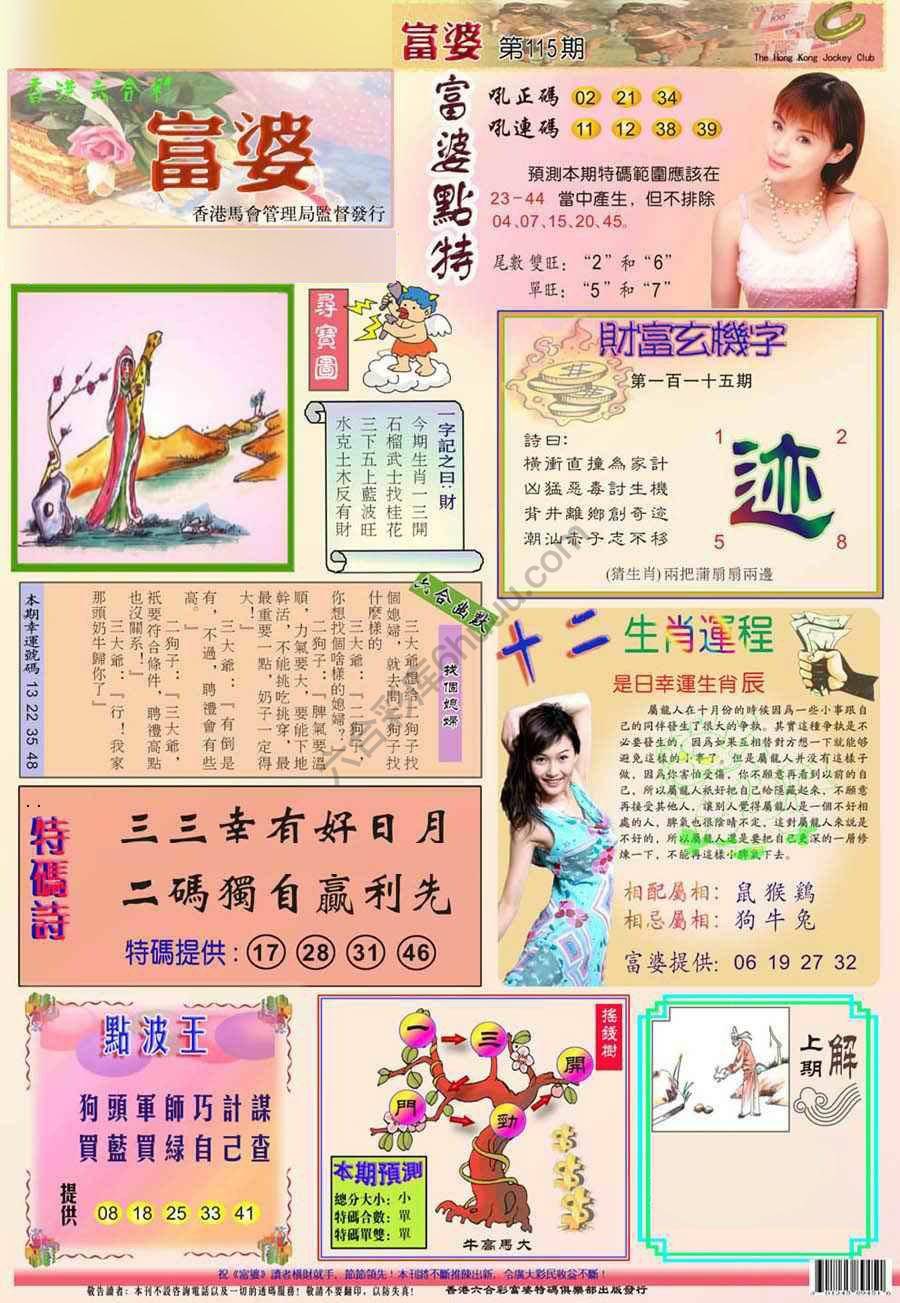 富婆 第115期
The Hong Kong Jockey Club
香港六合彩
富婆
香港馬會管理局監督發行
富婆點特
吼正碼 02 21 34
吼連碼 11 12 38 39
預測本期特碼範圍應該在
23-44 當中產生，但不排除
04、07、15、20、45。
尾數雙旺：“2”和“6”
單旺：“5”和“7”
尋寶圖
一字記之曰：財
今期生肖一三開
石榴武士找桂花
三下五上藍波旺
水克土木反有財
財富玄機字
第一百一十五期
詩曰：
橫衝直撞為家計
凶猛惡毒討生機
背井離鄉創奇迹
潮汕赤子志不移
1 2
迹
5 8
(猜生肖)兩把蒲扇扇兩邊
六合幽默
找個媳婦
三大爺想給二狗子找
個媳婦，就去問二狗子找
什麼樣的
三大爺：『二狗子，
你想找個啥樣的媳婦？』
二狗子：『脾氣要溫
順，力氣要大，要能下地
幹活，不能挑吃挑穿，最
最重要一點，奶子一定得
大！』
三大爺：『有倒是
有，不過，聘禮會有些
高。』
二狗子：『三大爺，
衹要符合條件，聘禮高點
也沒關系！』
三大爺：『行！我家
那頭奶牛歸你了』
本期幸運號碼 13 22 35 48
十二生肖運程
是日幸運生肖辰
屬龍人在十月份的時候因為一些小事跟自
己的同伴發生了很大的争執。其實這種争執是不
必要發生的，因爲如果互相替對方想一下就能够
避免這樣的小事了。但是屬龍人并没有這樣子
做，因爲你害怕受傷，你不願意再看到以前的自
己，所以屬龍人祇好把自己給隱藏起來，不願意
再接受其他人，讓别人覺得屬龍人是一個不好相
處的人，脾氣也很陰晴不定，這對屬龍人來説是
不好的，所以屬龍人還是要把自己更深的一層修
煉一下，不能再這樣小脾氣下去。
相配屬相：鼠猴鷄
相忌屬相：狗牛兔
富婆提供：06 19 27 32
特碼詩
三三幸有好日月
二碼獨自贏利先
特碼提供：17 28 31 46
點波王
狗頭軍師巧計謀
買藍買綠自己查
提供 08 18 25 33 41
搖錢樹
一 三 開
門 勁
本期預測
總分大小：小
特碼合數：單
特碼單雙：單
牛高馬大
上期解
祝《富婆》讀者橫財就手，節節領先！本刊將不斷推陳出新，令廣大彩民收益不斷！
敬告讀者：本刊不設咨詢電話以及一切的透碼服務！敬請不要翻印，以防失真！ 香港六合彩富婆特碼俱樂部出版發行